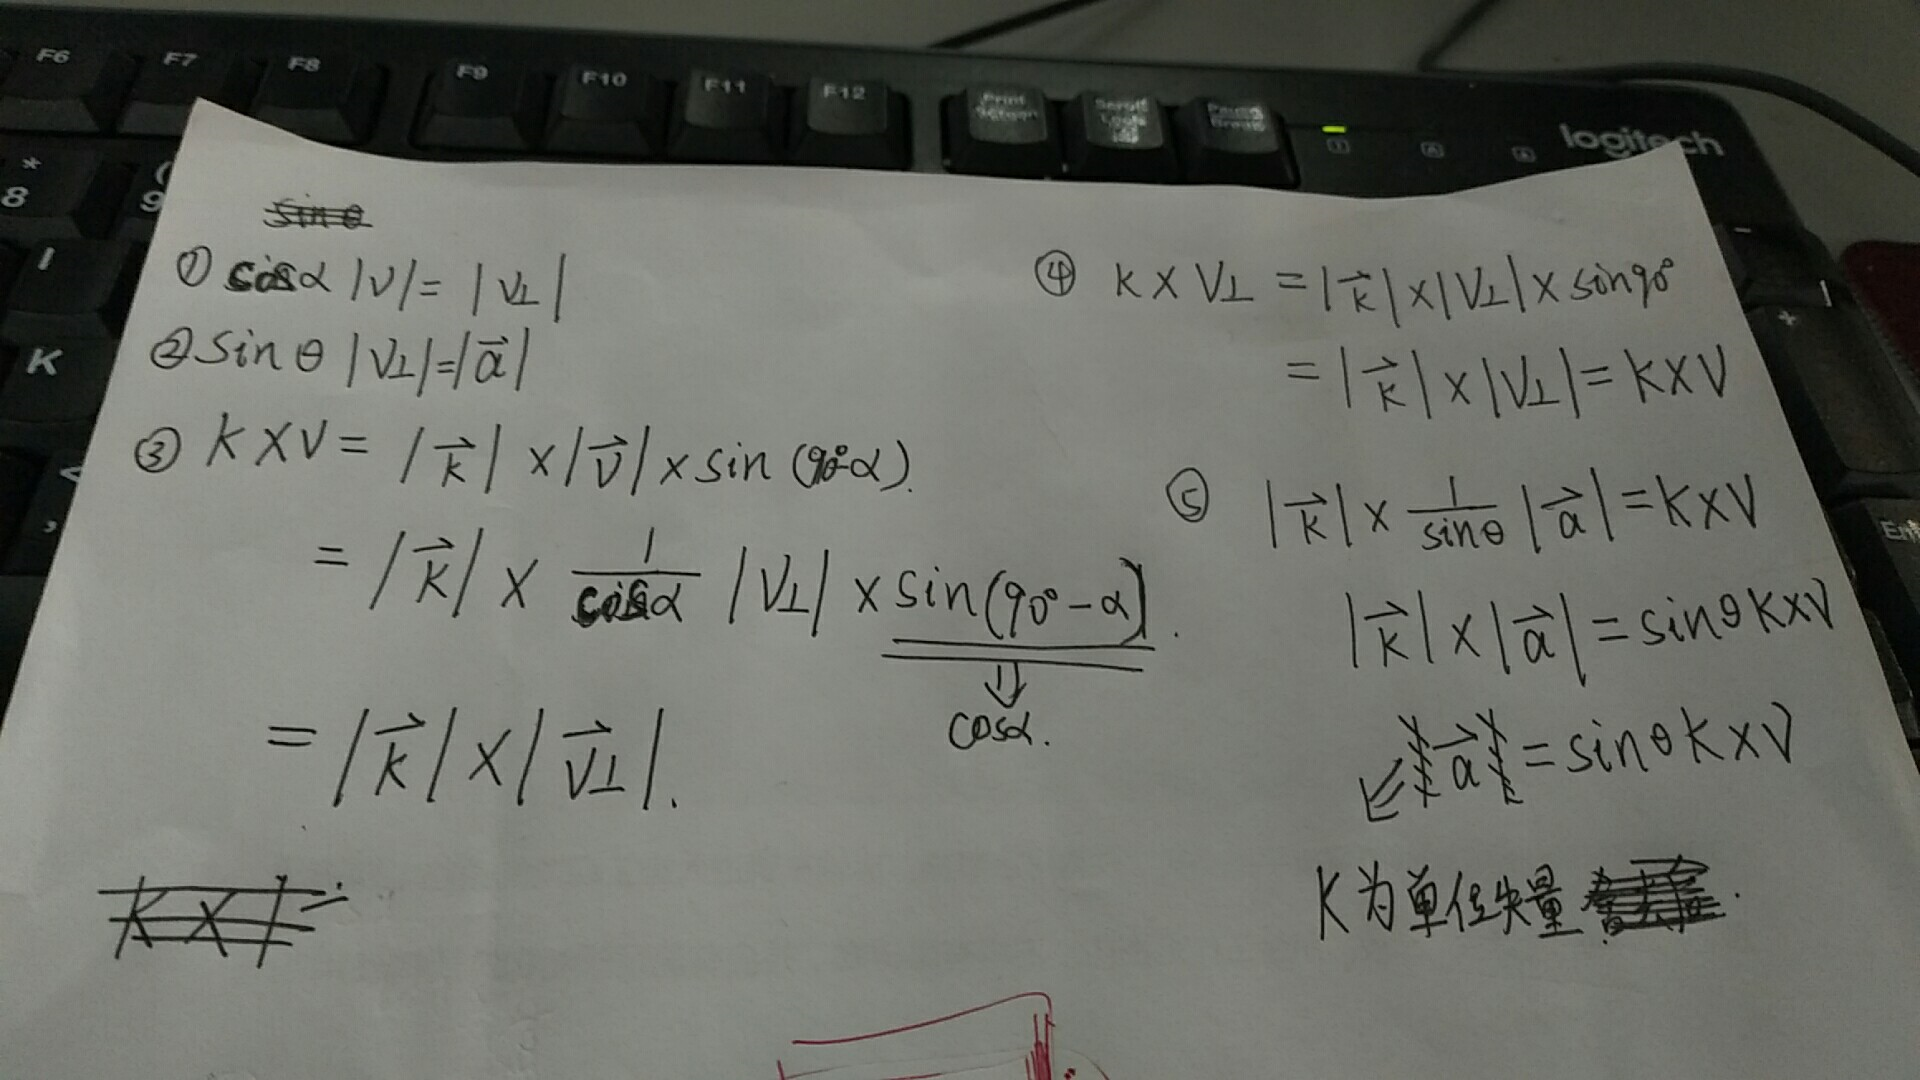 F6 F7 F8 F9 F10 F11 F12 Print Screen Scroll Lock Pause Break
logitech
* 8 ( 9
K
sinθ
① cosα |V| = |V⊥|
② sinθ |V⊥| = |a⃗|
③ K×V = |k⃗| × |v⃗| × sin (90°-α).
= |k⃗| × 1/cosα |V⊥| × sin(90°-α).
⇓
cosα.
= |k⃗| × |V⃗⊥|.
④ K×V⊥ = |k⃗| × |V⊥| × sin90°
= |k⃗| × |V⊥| = K×V
⑤ |k⃗| × 1/sinθ |a⃗| = K×V
|k⃗| × |a⃗| = sinθ K×V
a⃗ = sinθ K×V
K为单位矢量